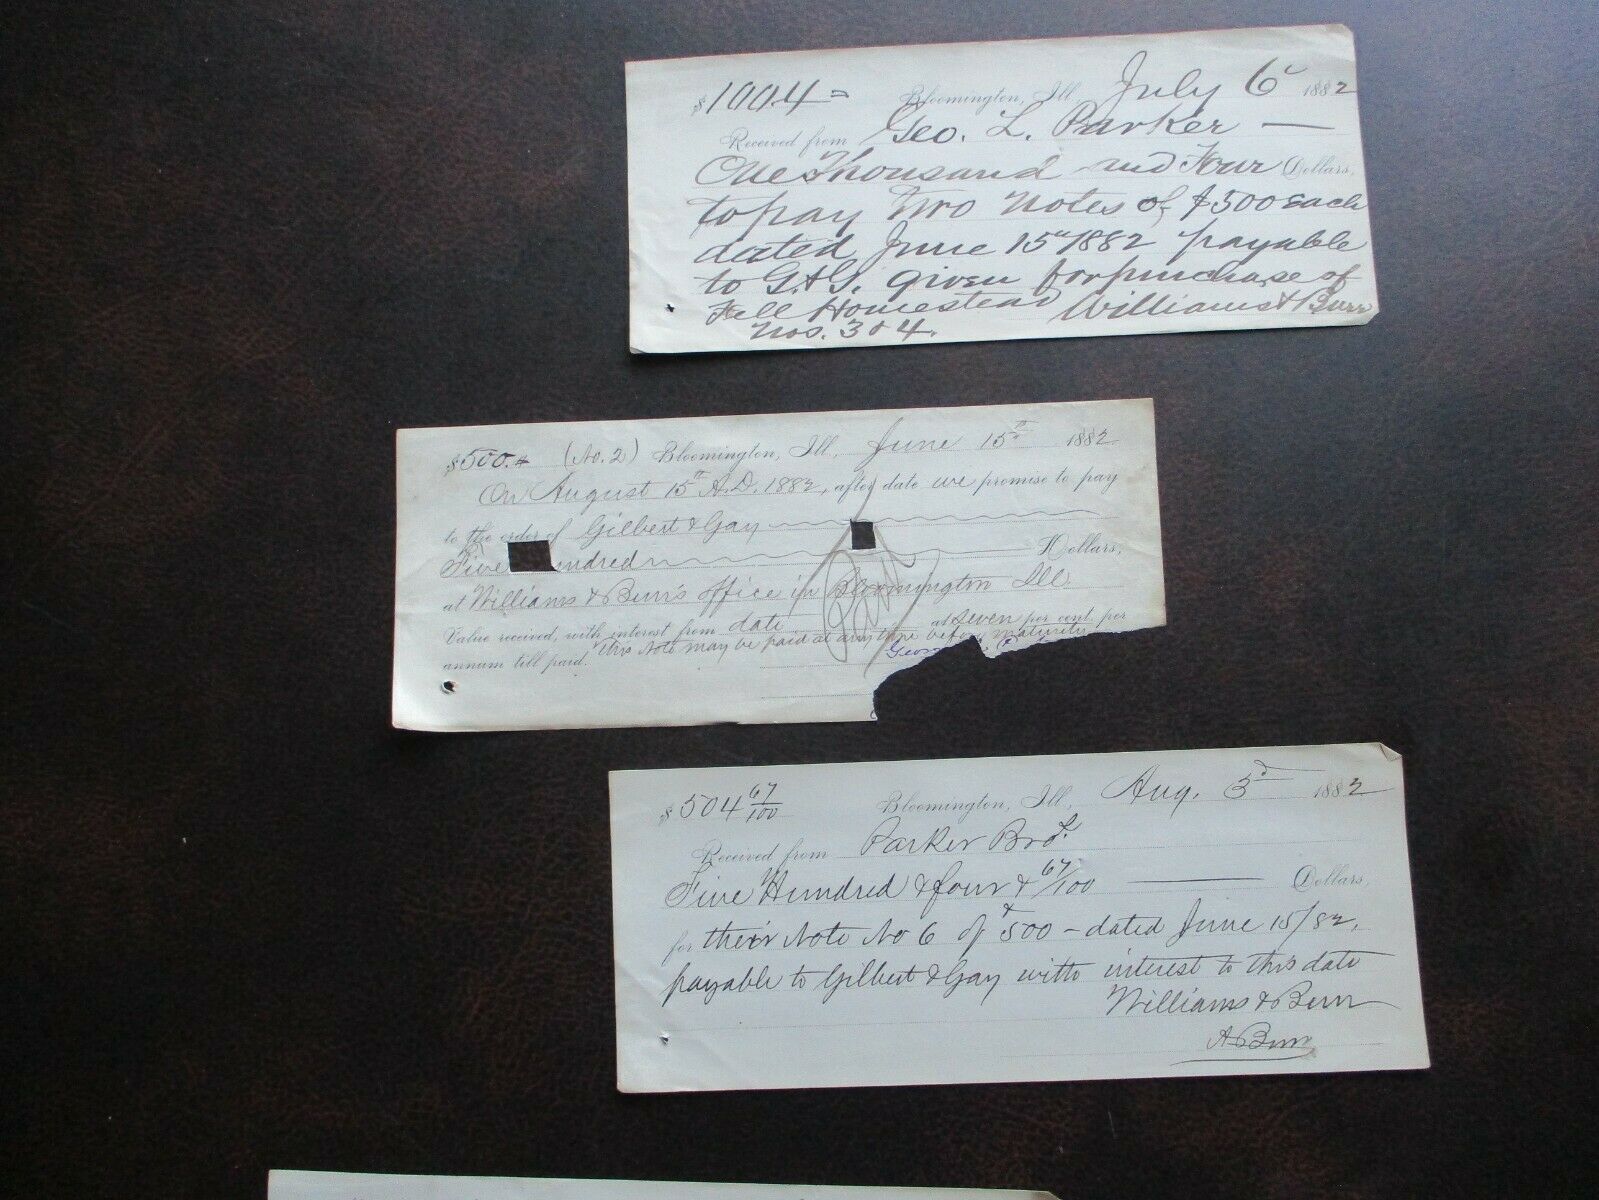 $1004 Bloomington, Ill. July 6 1882
Received from Geo. L. Parker —
One Thousand and Four Dollars,
to pay two notes of $500 Each
dated June 15th 1882 payable
to G. & G. given for purchase of
Fell Homestead Williams & Burr
Nos. 3 & 4.
$500. (No. 2) Bloomington, Ill., June 15th 1882
On August 15th A.D. 1882, after date we promise to pay
to the order of Gilbert & Gay
Five undred Dollars,
at Williams & Burr's office in Bloomington Ill
Value received, with interest from date at seven per cent. per
annum till paid. This Note may be paid at any time before maturity
Geor
$504 67/100 Bloomington, Ill., Aug. 3d 1882
Received from Parker Bros.
Five Hundred & four & 67/100 — Dollars,
for their Note No 6 of $500 – dated June 15/82,
payable to Gilbert & Gay with interest to this date
Williams & Burr
A Burr